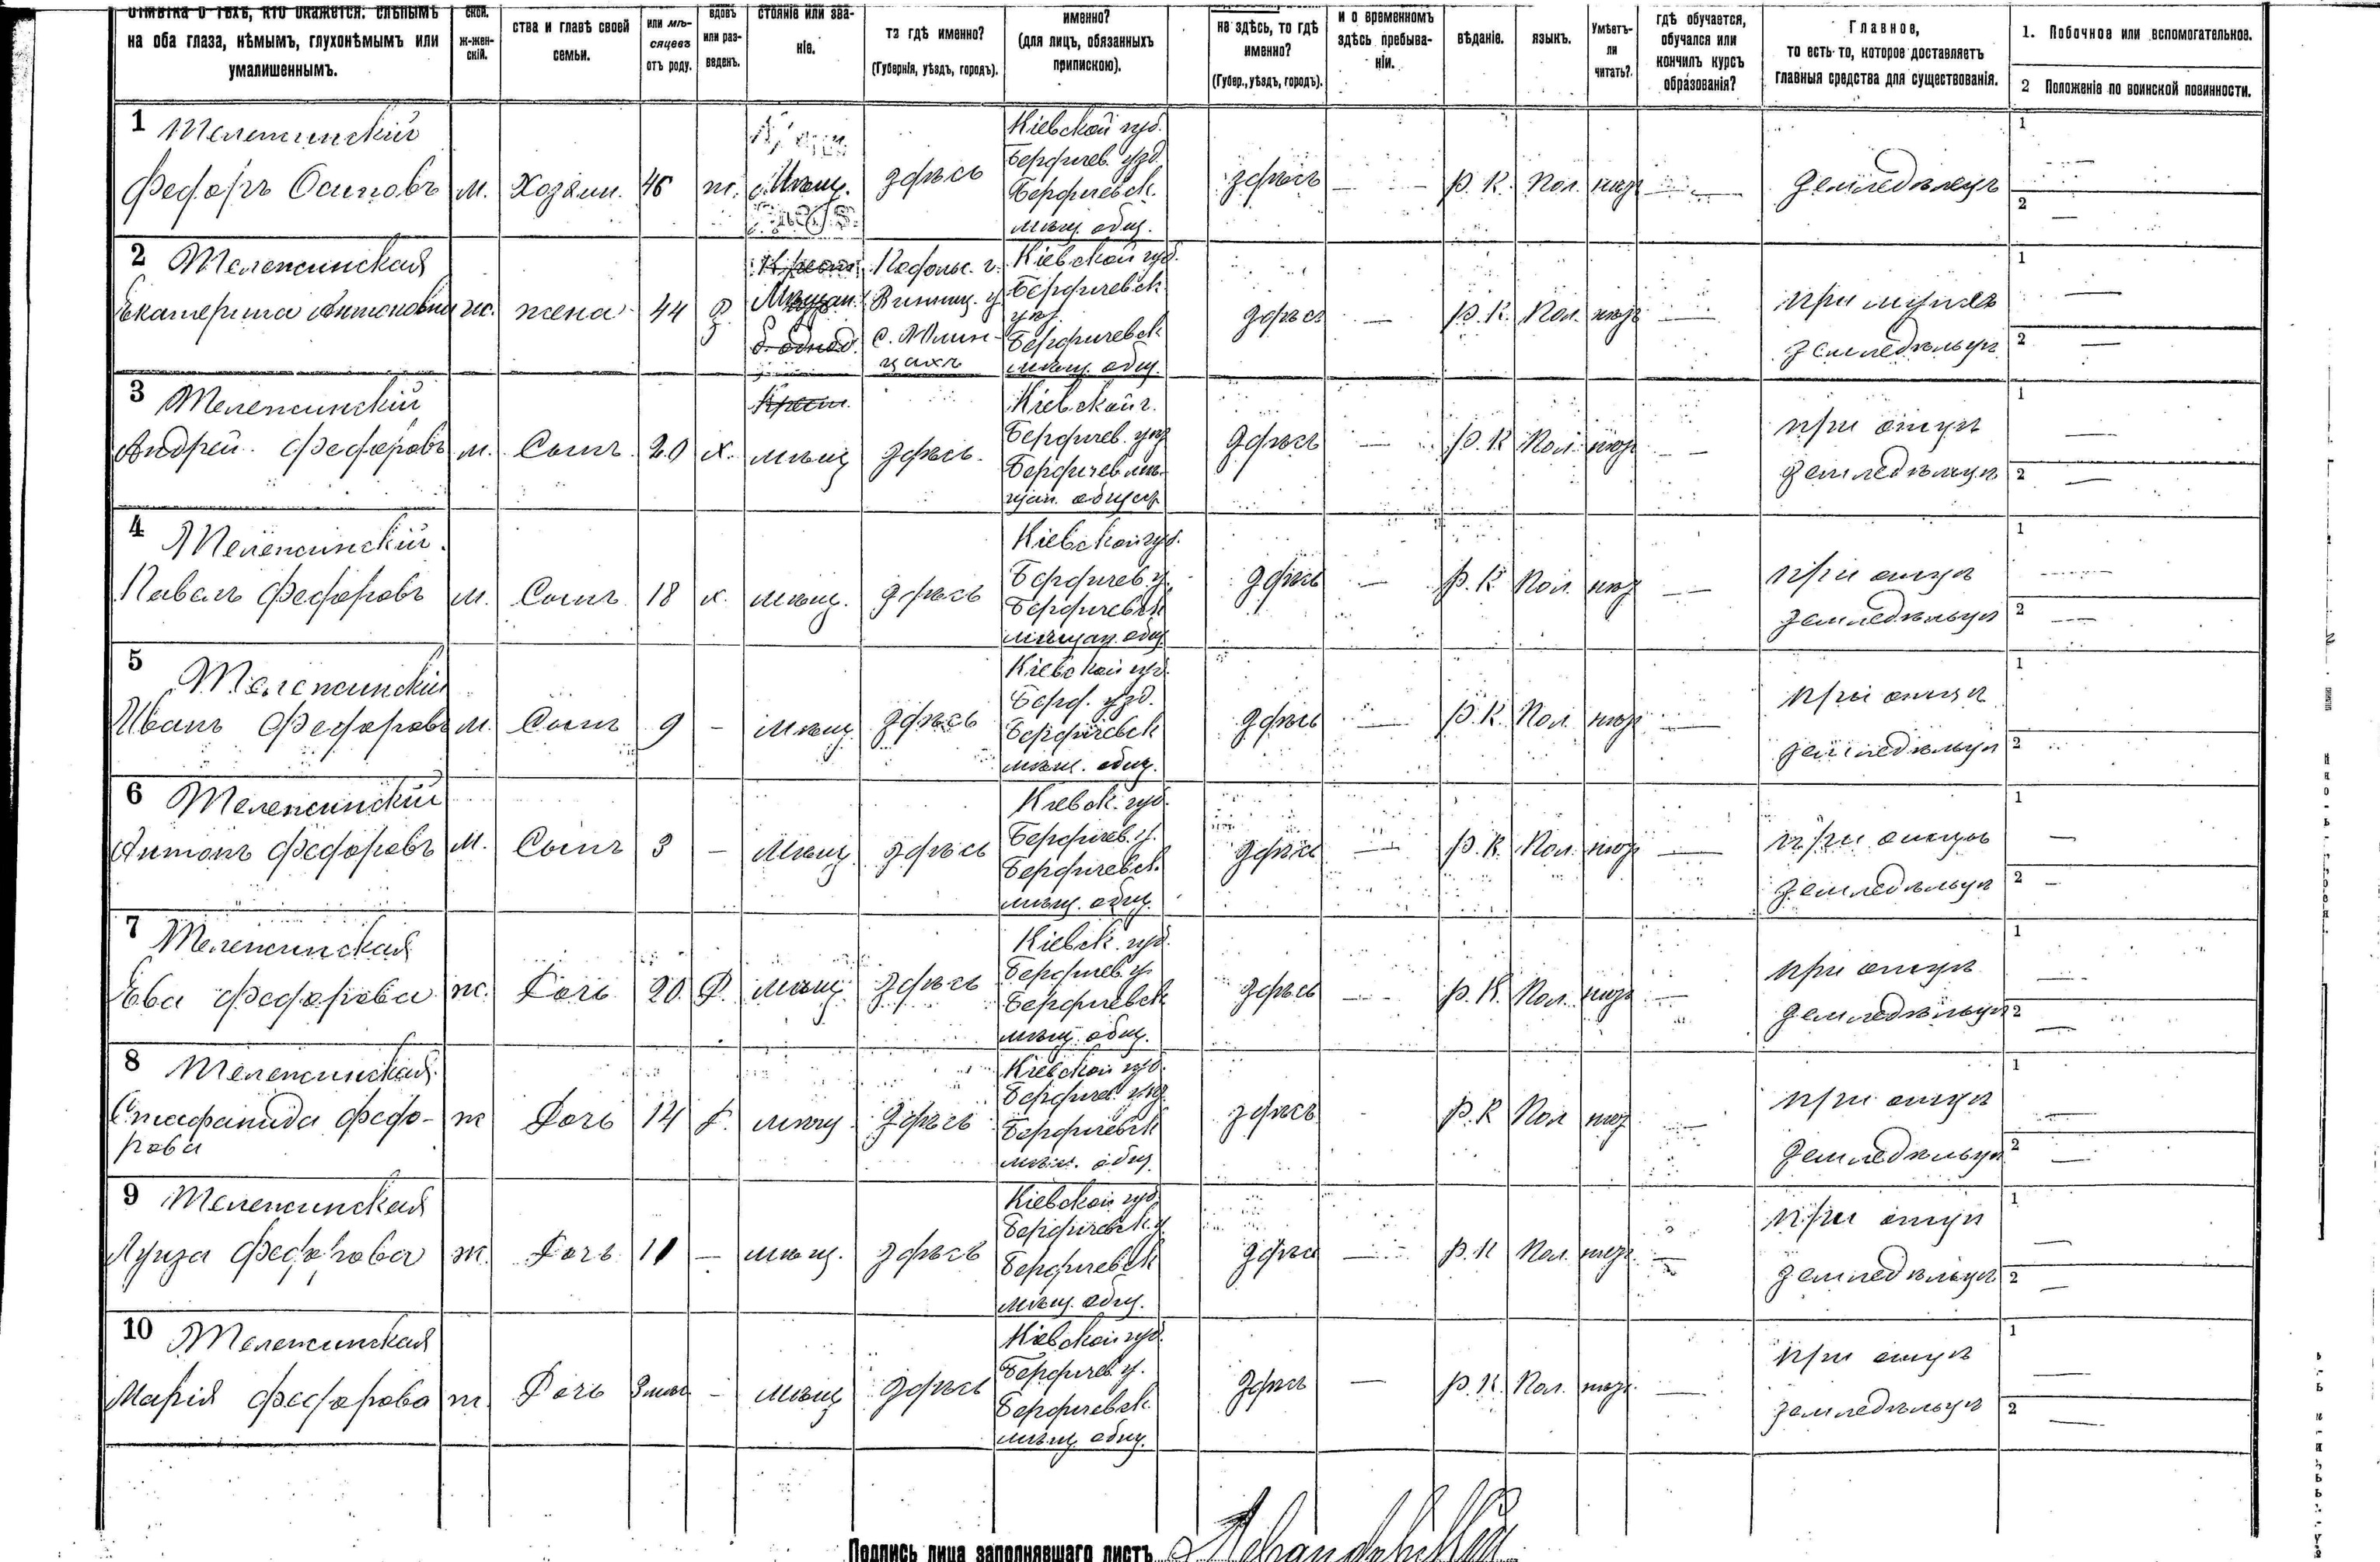 отмѣтка о тѣхъ, кто окажется: слѣпымъ
на оба глаза, нѣмымъ, глухонѣмымъ или
умалишеннымъ.
ской.
ж-жен-
скій.
ства и главѣ своей
семьи.
или мѣ-
сяцевъ
отъ роду.
вдовъ
или раз-
веденъ.
стояніе или зва-
ніе.
то гдѣ именно?
(Губернія, уѣздъ, городъ).
именно?
(для лицъ, обязанныхъ
припискою).
не здѣсь, то гдѣ
именно?
(Губер., уѣздъ, городъ).
и о временномъ
здѣсь пребыва-
ніи.
вѣданіе.
языкъ.
Умѣетъ-
ли
читать?
гдѣ обучается,
обучался или
кончилъ курсъ
образованія?
Главное,
то есть то, которое доставляетъ
главныя средства для существованія.
1. Побочное или вспомогательное.
2 Положеніе по воинской повинности.
1
Федоръ Осиповъ м. Хозяин. 46 ж. Мѣщ. здѣсь
Кіевской губ.
Бердичев. узд.
Бердичевск.
мѣщ. общ.
здѣсь — Р. К. Пол. нѣт — земледѣлецъ
1 —
2 —
2
Екатерина Антоновна ж. жена 44
Крест.
Мѣщан.
Подольс. г.
Винниц. у.
Кіевской губ.
Бердичевск.
Бердичевск
мѣщ. общ.
здѣсь — Р. К. Пол. нѣт —
при мужѣ
земледѣльцѣ
1 —
2 —
3
Андрей Федоровъ м. Сынъ 20 х.
Крест.
мѣщ здѣсь
Кіевской г.
Бердичев. узд
Бердичев мѣ-
щан. общест
здѣсь — Р. К Пол. нѣт —
при отцѣ
земледѣльцѣ
1 —
2 —
4
Павелъ Федоровъ м. Сынъ 18 х. мѣщ. здѣсь
Кіевской губ.
Бердичев. у.
Бердичевск
мѣщан. общ
здѣсь — Р. К Пол. нѣт —
при отцѣ
земледѣльцѣ
1 —
2 —
5
Иванъ Федоровъ м. Сынъ 9 — мѣщ. здѣсь
Кіевской губ.
Берд. узд.
Бердичевск
мѣщ. общ.
здѣсь — Р. К. Пол. нѣт —
при отцѣ
земледѣльцѣ
1
2
6
Антонъ Федоровъ м. Сынъ 3 — мѣщ. здѣсь
Кіевск. губ.
Бердичев. у.
Бердичевск.
мѣщ. общ.
здѣсь — Р. К. Пол. нѣт —
при отцѣ
земледѣльцѣ
1 —
2 —
7
Ева Федорова ж. Дочь 20 Д. мѣщ. здѣсь
Кіевск. губ.
Бердичев. у.
Бердичевск
мѣщ. общ.
здѣсь — Р. К. Пол. нѣт —
при отцѣ
земледѣльцѣ
1 —
2 —
8
Стефанида Федо-
рова
ж Дочь 14 Д. мѣщ здѣсь
Кіевской губ.
Бердичев узд.
Бердичевск
мѣщ. общ.
здѣсь Р. К Пол нѣт —
при отцѣ
земледѣльцѣ
1 —
2 —
9
Луиза Федорова ж. Дочь 11 — мѣщ. здѣсь
Кіевской губ.
Бердичевск. у.
Бердичевск
мѣщ. общ.
здѣсь — Р. К Пол. нѣт —
при отцѣ
земледѣльцѣ
1 —
2 —
10
Марія Федорова ж. Дочь — мѣщ здѣсь
Кіевской губ.
Бердичев. у.
Бердичевск.
мѣщ. общ.
здѣсь — Р. К. Пол. нѣт. —
при отцѣ
земледѣльцѣ
1 —
2 —
Подпись лица заполнявшаго листъ